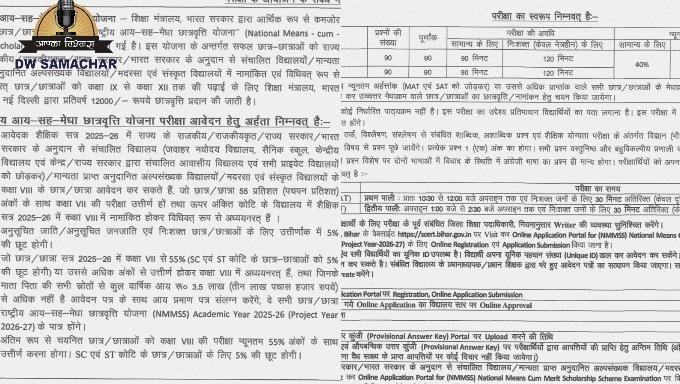 आपका विश्वास
DW SAMACHAR
आय-सह-मेधा छात्रवृत्ति योजना - शिक्षा मंत्रालय, भारत सरकार द्वारा आर्थिक रूप से कमजोर
"राष्ट्रीय आय-सह-मेधा छात्रवृत्ति योजना" (National Means - cum -
गई है। इस योजना के अन्तर्गत सफल छात्र-छात्राओं को राज्य
राज्य सरकार/भारत सरकार के अनुदान से संचालित विद्यालयों/मान्यता
अनुदानित अल्पसंख्यक विद्यालयों/मदरसा एवं संस्कृत विद्यालयों में नामांकित एवं विधिवत् रूप से
छात्र/छात्राओं को कक्षा IX से कक्षा XII तक की पढ़ाई के लिए शिक्षा मंत्रालय, भारत
नई दिल्ली द्वारा प्रतिवर्ष 12000/- रूपये छात्रवृत्ति प्रदान की जाती है।
य आय-सह-मेधा छात्रवृत्ति योजना परीक्षा आवेदन हेतु अर्हता निम्नवत् है:-
आवेदक शैक्षिक सत्र 2025-26 में राज्य के राजकीय/राजकीयकृत/राज्य सरकार/भारत
सरकार के अनुदान से संचालित विद्यालय (जवाहर नवोदय विद्यालय, सैनिक स्कूल, केन्द्रीय
विद्यालय एवं केन्द्र/राज्य सरकार द्वारा संचालित आवासीय विद्यालय एवं सभी प्राइवेट विद्यालयों
को छोड़कर)/मान्यता प्राप्त अनुदानित अल्पसंख्यक विद्यालयों/मदरसा एवं संस्कृत विद्यालयों के
कक्षा VIII के छात्र/छात्रा आवेदन कर सकते हैं, जो छात्र/छात्रा 55 प्रतिशत (पचपन प्रतिशत)
अंकों के साथ कक्षा VII की परीक्षा उत्तीर्ण हों तथा ऊपर अंकित कोटि के विद्यालय में शैक्षिक
सत्र 2025-26 में कक्षा VIII में नामांकित होकर विधिवत् रूप से अध्ययनरत् हैं ।
अनुसूचित जाति/अनुसूचित जनजाति एवं निःशक्त छात्र/छात्राओं के लिए उत्तीर्णांक में 5%
की छूट होगी।
जो छात्र/छात्रा सत्र 2025-26 में कक्षा VII से 55%(SC एवं ST कोटि के छात्र-छात्राओं को 5%
की छूट होगी) या उससे अधिक अंकों से उत्तीर्ण होकर कक्षा VIII में अध्ययनरत् हैं, तथा जिनके
माता पिता की सभी स्रोतों से कुल वार्षिक आय रू० 3.5 लाख (तीन लाख पचास हजार रूपये)
से अधिक नहीं है आवेदन पत्र के साथ आय प्रमाण पत्र संलग्न करेंगे, वे सभी छात्र/छात्रा
राष्ट्रीय आय-सह-मेधा छात्रवृत्ति योजना (NMMSS) Academic Year 2025-26 (Project Year
2026-27) के पात्र होंगे।
अंतिम रूप से चयनित छात्र/छात्राओं को कक्षा VIII की परीक्षा न्यूनतम 55% अंकों के साथ
उत्तीर्ण करना होगा। SC एवं ST कोटि के छात्र/छात्राओं के लिए 5% की छूट होगी।
परीक्षा का स्वरूप निम्नवत् है:-
प्रश्नों की संख्या पूर्णांक परीक्षा की अवधि
सामान्य के लिए निःशक्त (केवल नेत्रहीन) के लिए सामान्य के लिए
90 90 90 मिनट 120 मिनट 40%
90 90 90 मिनट 120 मिनट
न्यूनतम अर्हतांक (MAT एवं SAT को जोड़कर) या उससे अधिक प्राप्तांक वाले सभी छात्र/छात्राओं के मेधाक्रम
कर उच्चतर मेधाक्रम वाले छात्र/छात्राओं का छात्रवृत्ति/नामांकन हेतु चयन किया जायेगा।
कोई निर्धारित पाठ्यक्रम नहीं है। इस परीक्षा का उद्देश्य प्रतिभावान विद्यार्थियों का पता लगाना है। इस परीक्षा में
होंगे।
तर्क, विश्लेषण, संश्लेषण से संबंधित शाब्दिक, अशाब्दिक प्रश्न एवं शैक्षिक योग्यता परीक्षा के अंतर्गत विज्ञान
विषय से प्रश्न पूछे जायेंगे। प्रत्येक प्रश्न 1 (एक) अंक का होगा। सभी प्रश्न वस्तुनिष्ठ और बहुविकल्पीय प्रणाली
प्रश्न विशेष पर दोनों भाषाओं में विवाद के स्थिति में अंग्रेजी भाषा का प्रश्न ही मान्य होगा। परीक्षार्थियों को
है :-
परीक्षा का समय
प्रथम पाली: प्रातः 10:30 से 12:00 बजे अपराहन तक एवं निःशक्त जनों के लिए 30 मिनट अतिरिक्त
द्वितीय पाली: अपराहन 1:00 बजे से 2:30 बजे अपराहन तक एवं निःशक्त जनों के लिए 30 मिनट अतिरिक्त
के लिए परीक्षा के पूर्व संबंधित जिला शिक्षा पदाधिकारी, नियमानुसार Writer की व्यवस्था सुनिश्चित करेंगे।
Bihar के वेबसाईट https://scert.bihar.gov.in पर Visit कर Online Application Portal for (NMMSS) National Means
Project Year-2026-27) के लिए Online Registration एवं Application Submission किया जाना है।
सभी विद्यार्थियों का यूनिक ID उपलब्ध है। विद्यार्थी अपना यूनिक पहचान संख्या (Unique ID) डाल कर आवेदन कर सकेंगे।
कर सकते है। संबंधित विद्यालय के प्रधानाध्यापक/प्रधान शिक्षक द्वारा भरे हुए आवेदन पत्रों का सत्यापन किया जाएगा।
करेंगे।
Application Portal पर Registration, Online Application Submission
गये Online Application का विद्यालय स्तर पर Online Approval
कुंजी (Provisional Answer Key) Portal पर Upload करने की तिथि
औपबन्धिक उत्तर कुंजी (Provisional Answer Key) पर परीक्षार्थियों द्वारा आपत्तियों की प्राप्ति हेतु अन्तिम तिथि
वैध साक्ष्य के प्राप्त आपत्तियों पर कोई विचार नहीं किया जायेगा।)
सरकार/भारत सरकार के अनुदान से संचालित विद्यालय/मान्यता प्राप्त अनुदानित अल्पसंख्यक विद्यालयों/मदरसा
कर Online Application for (NMMSS) National Means Cum Merit Scholarship Scheme Examination पर